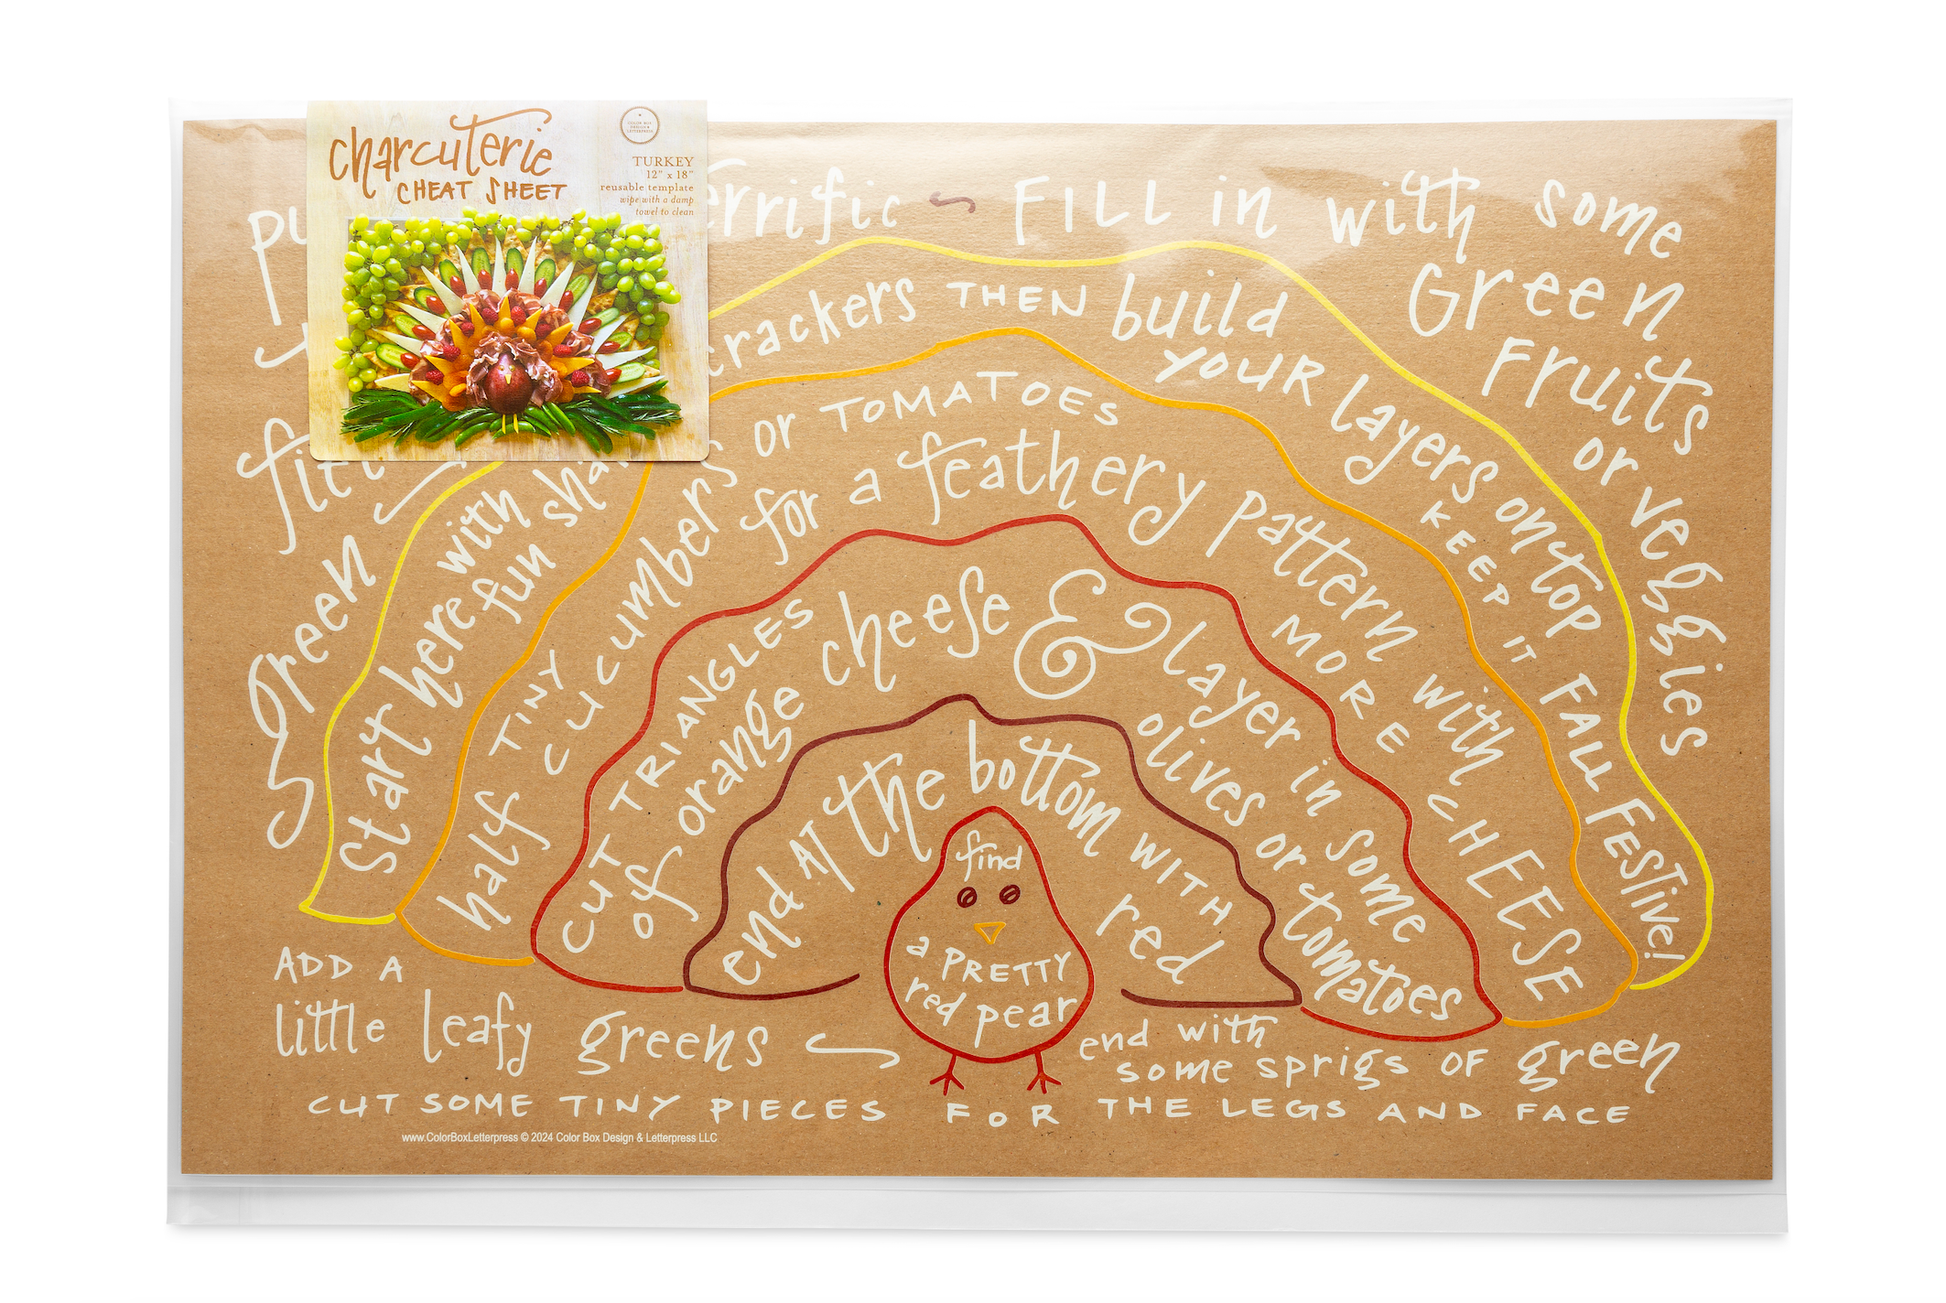 charcuterie
CHEAT SHEET
COLOR BOX
DESIGN &
LETTERPRESS
TURKEY
12" x 18"
reusable template
wipe with a damp
towel to clean
FILL in with some
Green
Fruits
or veggies
green
Start here with
fun
crackers THEN build
YOUR layers on top
KEEP IT FALL FESTIVE!
half TINY
CUCUMBERS or TOMATOES
for a feathery pattern with
MORE CHEESE
CUT TRIANGLES
of orange cheese & layer in some
olives or tomatoes
end AT the bottom WITH
red
find
a PRETTY
red pear
ADD A
little leafy greens
end with
some sprigs OF green
CUT SOME TINY PIECES FOR THE LEGS AND FACE
www.ColorBoxLetterpress © 2024 Color Box Design & Letterpress LLC